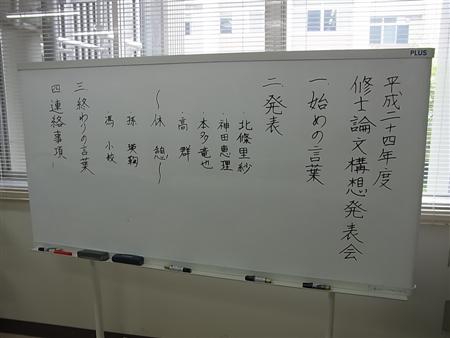 平成二十四年度
修士論文構想発表会
一、始めの言葉
二、発表
・北條里紗
・神田恵理
・本多竜也
・高群
〜休憩〜
・孫
・馮小
三、終わりの言葉
四、連絡事項
PLUS